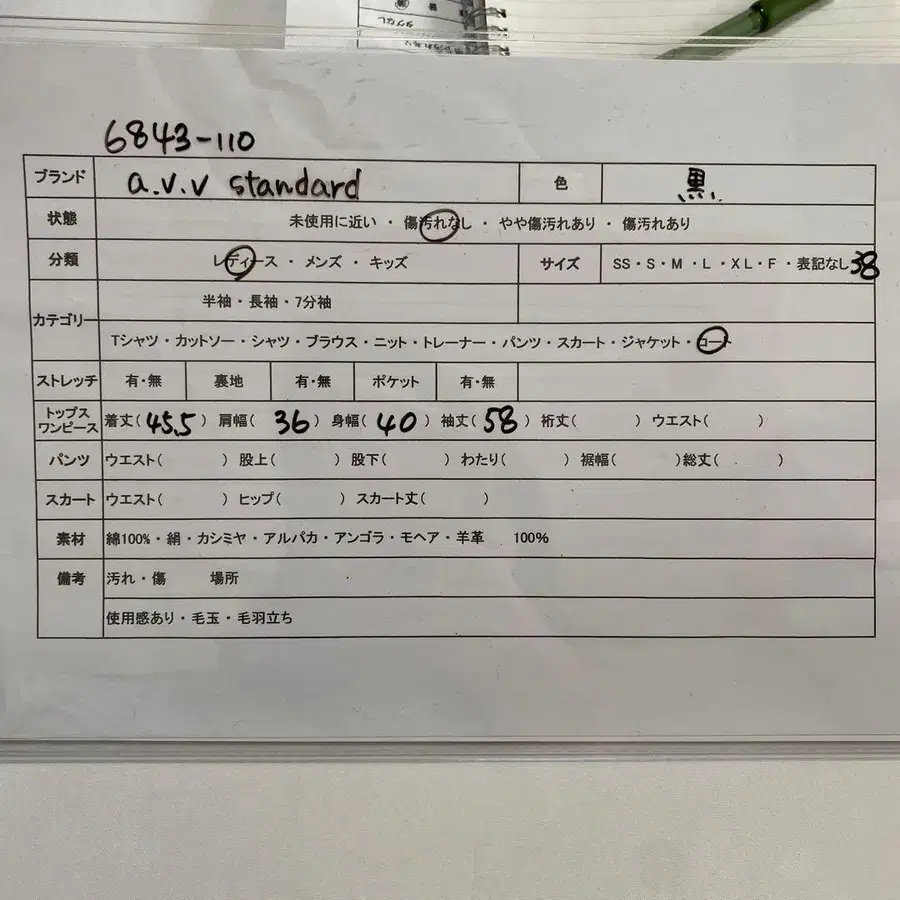 タグなし
6843-110
ブランド a.v.v standard 色 黒
状態 未使用に近い ・ 傷汚れなし ・ やや傷汚れあり ・ 傷汚れあり
分類 レディース ・ メンズ ・ キッズ サイズ SS・S・M・L・XL・F・表記なし 38
カテゴリー 半袖・長袖・7分袖
Tシャツ・カットソー・シャツ・ブラウス・ニット・トレーナー・パンツ・スカート・ジャケット・コート
ストレッチ 有・無 裏地 有・無 ポケット 有・無
トップス
ワンピース 着丈( 45.5 ) 肩幅( 36 ) 身幅( 40 ) 袖丈( 58 ) 裄丈( ) ウエスト( )
パンツ ウエスト( ) 股上( ) 股下( ) わたり( ) 裾幅( )総丈( )
スカート ウエスト( ) ヒップ( ) スカート丈( )
素材 綿100%・絹・カシミヤ・アルパカ・アンゴラ・モヘア・羊革 100%
備考 汚れ・傷 場所
使用感あり・毛玉・毛羽立ち